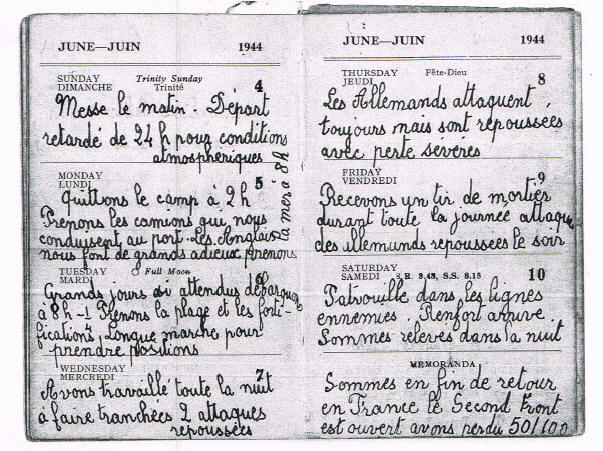 JUNE—JUIN 1944
SUNDAY Trinity Sunday 4
DIMANCHE Trinité
Messe le matin. Départ
retardé de 24 h pour conditions
atmosphériques
MONDAY 5
LUNDI
Quittons le camp à 2 h
Prenons les camions qui nous
conduisent au port. Les Anglais
nous font de grands adieux prenons
la mer à 8h
TUESDAY Full Moon 6
MARDI
Grands jours si attendus débarquons
à 8 h -! Prenons la plage et les forti-
fications, Longue marche pour
prendre positions
WEDNESDAY 7
MERCREDI
Avons travaillé toute la nuit
à faire tranchées 2 attaques
repoussées
JUNE—JUIN 1944
THURSDAY Fête-Dieu 8
JEUDI
Les Allemands attaquent
toujours mais sont repoussées
avec perte sévères
FRIDAY 9
VENDREDI
Recevons un tir de mortier
durant toute la journée attaque
des allemands repoussées le soir
SATURDAY 10
SAMEDI S.R. 3.43, S.S. 8.15
Patrouille dans les lignes
ennemies. Renfort arrive.
Sommes relevés dans la nuit
MEMORANDA
Sommes en fin de retour
en France le Second Front
est ouvert avons perdu 50/100